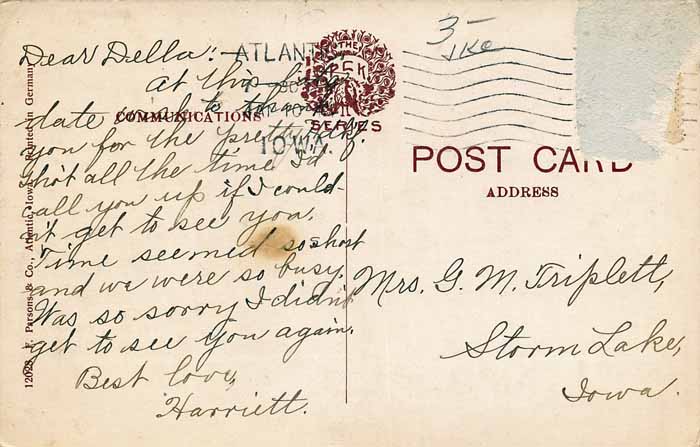 Dear Della:-
At this late date want to thank
you for the pretty gift.
Tho't all the time I'd
call you up if I could-
n't get to see you.
Time seemed so short
and we were so busy.
Was so sorry I didn't
get to see you again.
Best love,
Harriett.
COMMUNICATIONS
12028 F. Parsons & Co., Atlantic, Iowa. Printed in Germany
ATLANTIC
IOWA
THE
PCK
SERIES
3-
POST CARD
ADDRESS
Mrs. G. M. Triplett,
Storm Lake,
Iowa.